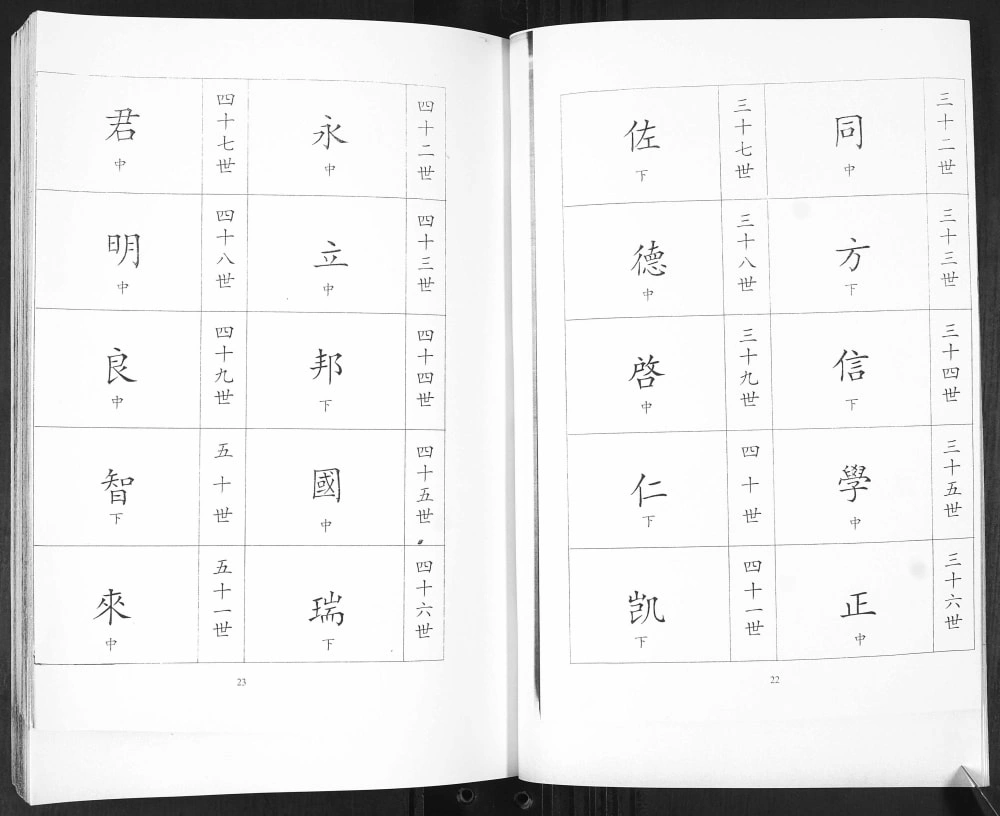 三十二世
同
中
三十三世
方
下
三十四世
信
下
三十五世
學
中
三十六世
正
中
三十七世
佐
下
三十八世
德
中
三十九世
啓
中
四十世
仁
下
四十一世
凱
下
22
四十二世
永
中
四十三世
立
中
四十四世
邦
下
四十五世
國
中
四十六世
瑞
下
四十七世
君
中
四十八世
明
中
四十九世
良
中
五十世
智
下
五十一世
來
中
23